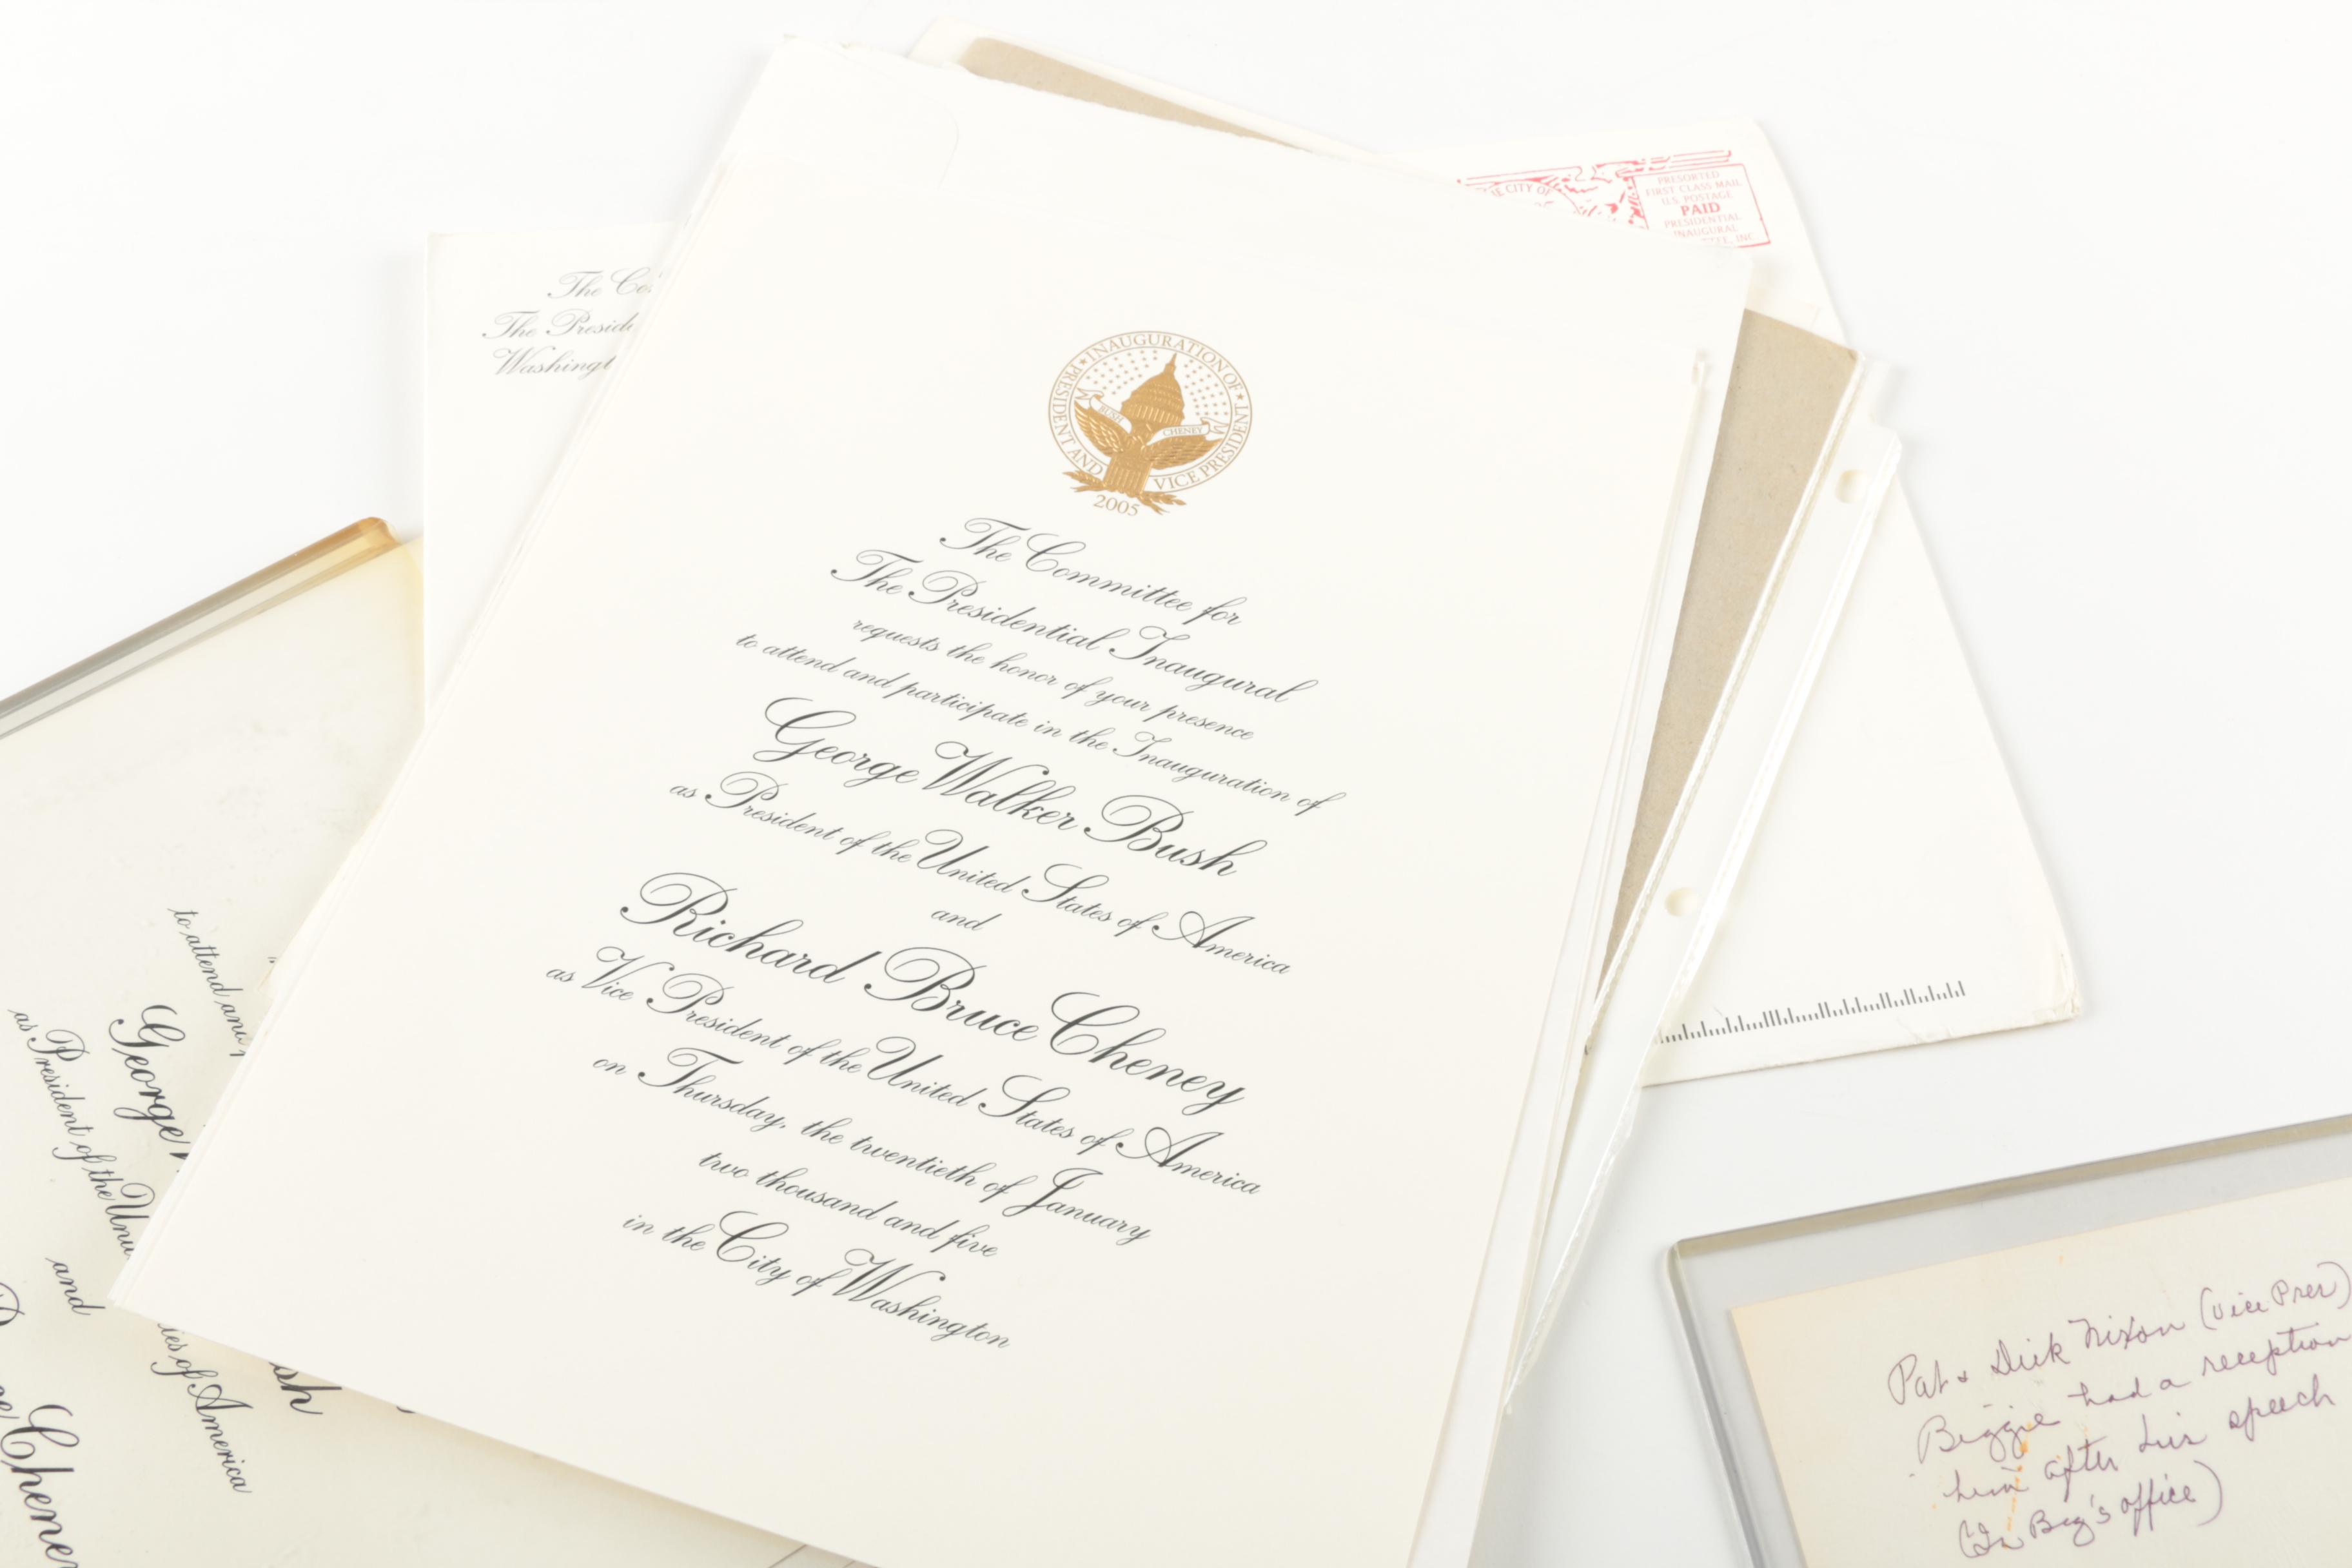 The
The
Washingt
THE CITY OF
PRESORTED
FIRST CLASS MAIL
U.S. POSTAGE
PAID
PRESIDENTIAL
INAUGURAL
INC
INAUGURATION OF
PRESIDENT AND VICE PRESIDENT
BUSH CHENEY
2005
The Committee for
The Presidential Inaugural
requests the honor of your presence
to attend and participate in the Inauguration of
George Walker Bush
as President of the United States of America
and
Richard Bruce Cheney
as Vice President of the United States of America
on Thursday, the twentieth of January
two thousand and five
in the City of Washington
to attend and
George
as President of the Unit
and
of America
sh
Chene
Pat & Dick Nixon (Vice Pres)
Biggie had a reception
him after his speech
(In Big's office)